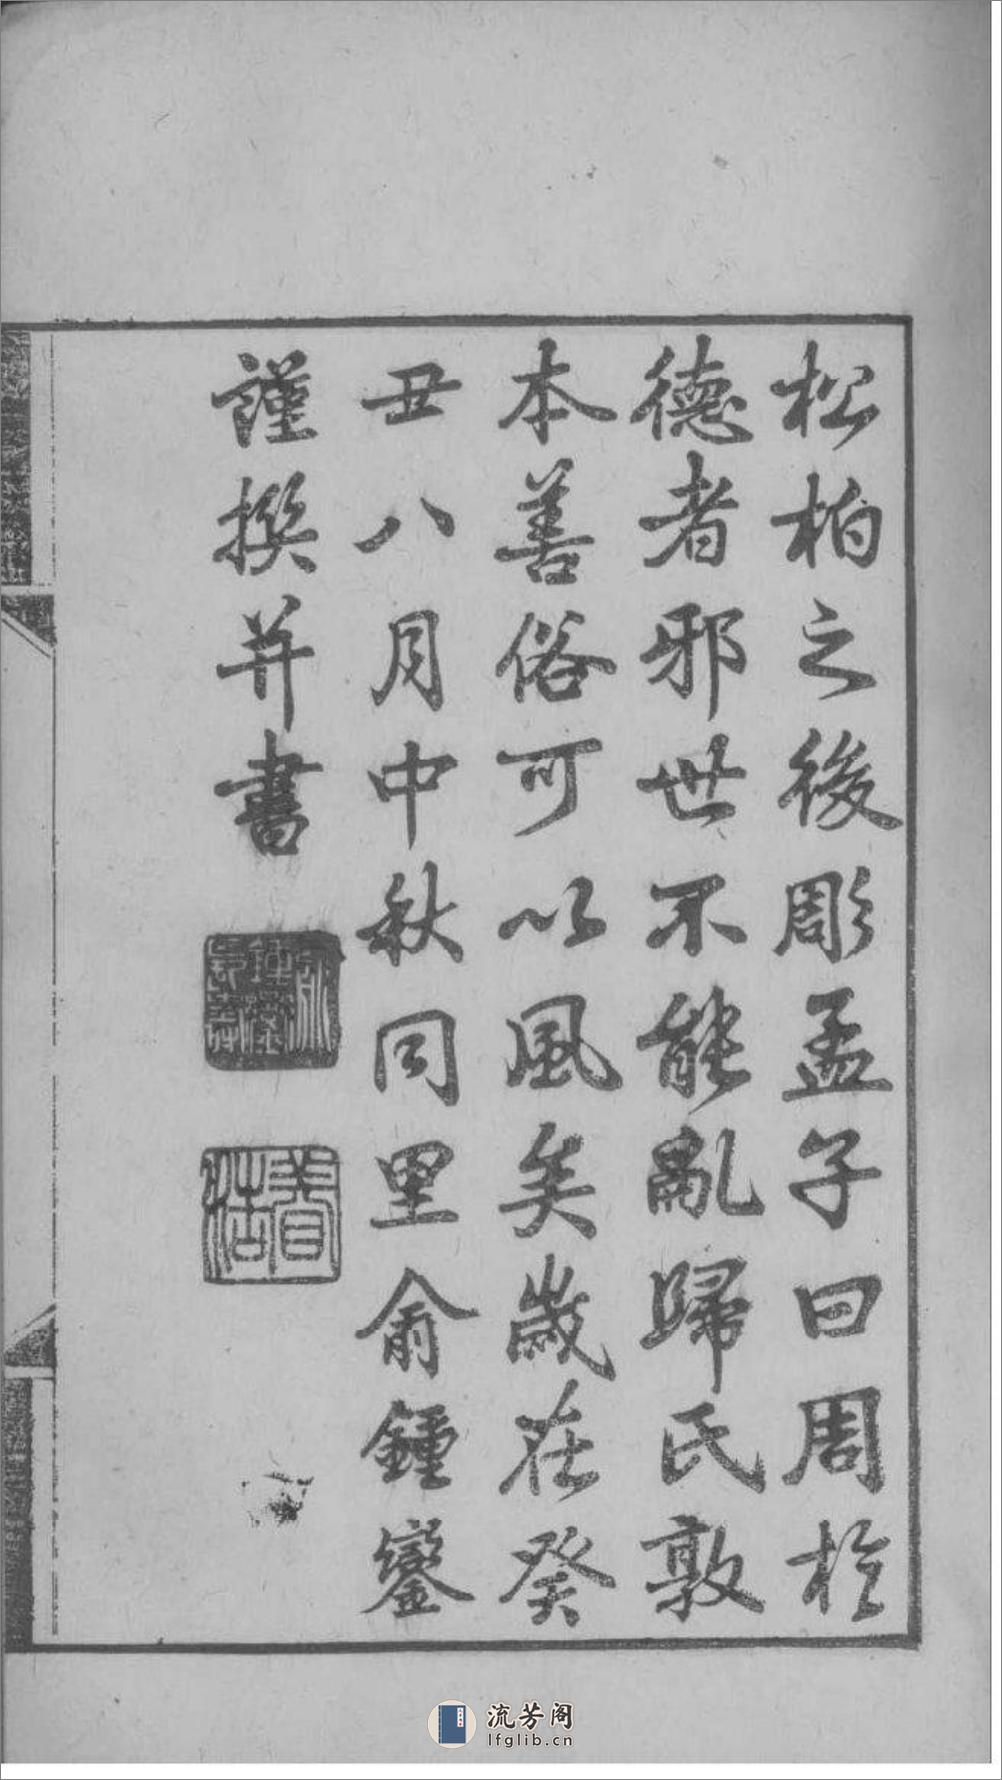 松柏之後彫孟子曰周於
德者邪世不能亂歸氏敦
本善俗可以風矣歲在癸
丑八月中秋同里俞鍾鑾
謹撰并書
養浩
流芳阁
lfglib.cn